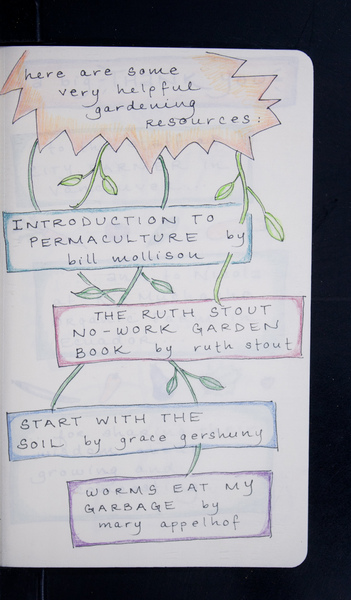 here are some
very helpful
gardening
resources:
INTRODUCTION TO
PERMACULTURE by
bill mollison
THE RUTH STOUT
NO-WORK GARDEN
BOOK by ruth stout
START WITH THE
SOIL by grace gershuny
WORMS EAT MY
GARBAGE by
mary appelhof